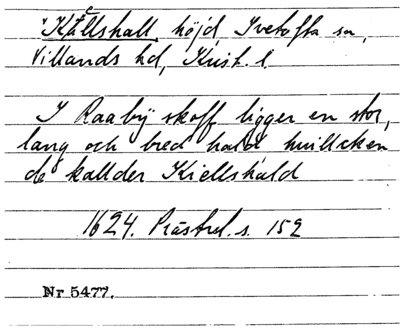 Källshall höjd Ivetofta sn,
Villands hd, Krist. l.
I Raabÿ skoff ligger en stor,
lang och bred hald huillcken
de kallder Kiellshald
1624. Prästrel. s. 152
Nr 5477.